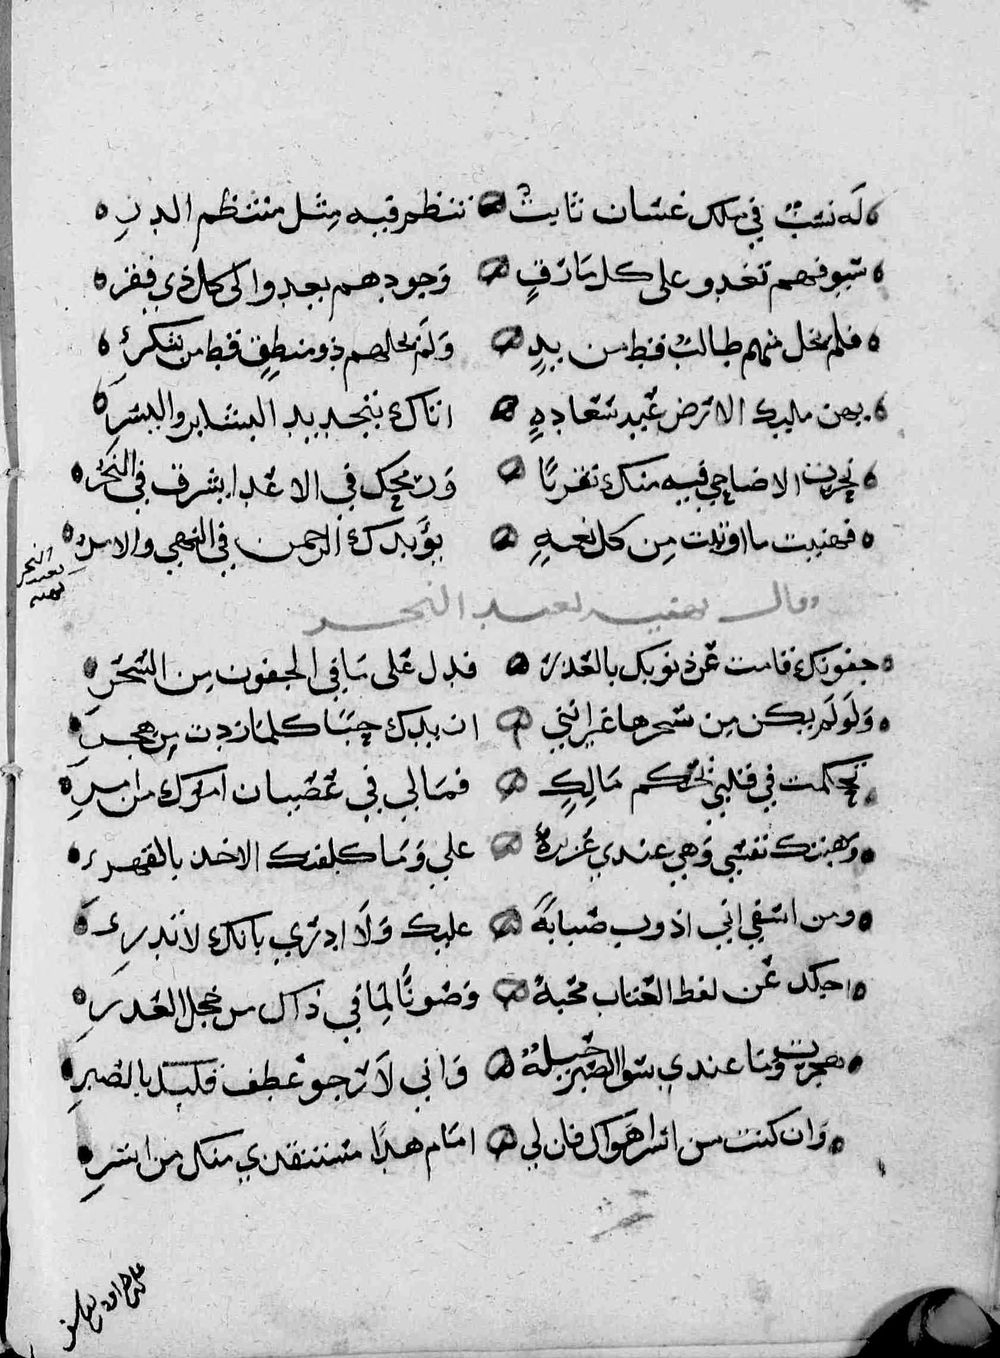 له نسب في ملك غسان ثابت تنظم فيه مثل منتظم الدر
سيوفهم تغدو على كل مارق وجودهم يعدوا الى كل ذي فقر
فلم يخل منهم طالب قط من يد ولم يخلهم ذو منطق قط من شكر
يهن مليك الارض عيد سعاده اتاك بتجديد البشاير والبشر
نحرت الاضاحي فيه منك تقربا ورمحك في الاعدا يشرق في النحر
فهنيت ما اوتيت من كل نعمه يؤيدك الرحمن في النهي والامر
وقال يهنيه بعيد النحر
يهنيه بعيد النحر
جفونك قامت عن ذنوبك بالعذر فدل على ما في الجفون من السحر
ولو لم يكن من سحرها غير انني ازيدك حبا كلما زدت من هجر
تحكمت في قلبي تحكم مالك فمالي في عصيان امرك من امر
وهبتك نفسي وهي عندي عزيزة علي وما كلفتك الاخذ بالقهر
ومن اسفي اني اذوب صبابة عليك ولا ادري بانك لا تدري
اجلك عن لفظ العتاب محبة وصونا لما في ذاك من خجل العذر
هجرت وما عندي سوى الصبر حيلة واني لارجو عطف قلبك بالصبر
وان كنت من اسرا هواك فان لي امام هدا مستنقذي منك من اسر